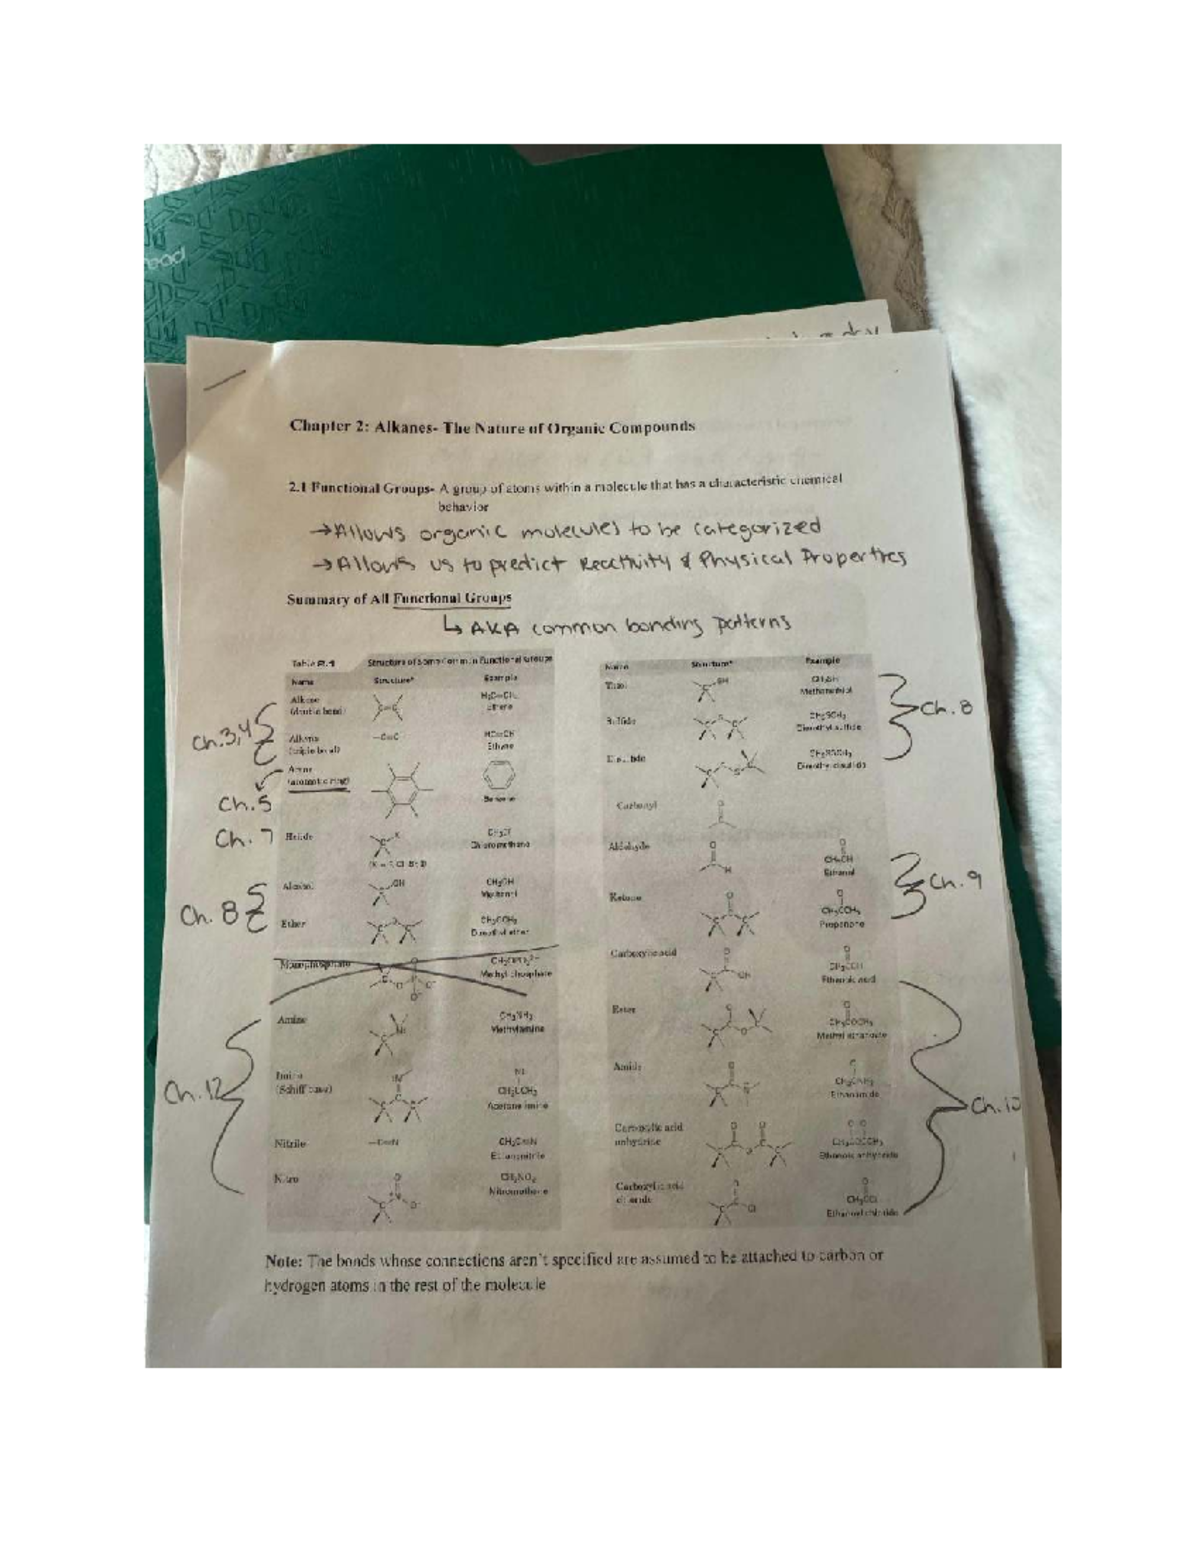 Chapter 2: Alkanes- The Nature of Organic Compounds
2.1 Functional Groups- A group of atoms within a molecule that has a characteristic chemical
behavior
→Allows organic molecules to be categorized
→Allows us to predict Reactivity & Physical Properties
Summary of All Functional Groups
↳ AKA common bonding patterns
Table 2.1 Structure of Some Common Functional Groups
Name Structure* Example
Alkene
(double bond)
Ethene
Ch.3,4
Alkyne
(triple bond)
HC≡CH
Ethyne
Arene
(aromatic ring)
Benzene
Ch.5
Ch. 7
Halide
Chloromethane
Ch. 8
Alcohol
OH
CH₃OH
Methanol
Ether
CH₃OCH₃
Dimethyl ether
Monophosphate
Methyl phosphate
Amine
CH₃NH₂
Methylamine
Ch.12
Imine
(Schiff base)
Acetone imine
Nitrile
CH₃C≡N
Ethanenitrile
Nitro
CH₃NO₂
Nitromethane
Name Structure* Example
Thiol
SH
CH₃SH
Methanethiol
Ch.8
Sulfide
CH₃SCH₃
Dimethyl sulfide
Disulfide
CH₃SSCH₃
Dimethyl disulfide
Carbonyl
Aldehyde
CH₃CH
Ethanal
Ch.9
Ketone
CH₃CCH₃
Propanone
Carboxylic acid
OH
CH₃COH
Ethanoic acid
Ester
CH₃COCH₃
Methyl ethanoate
Amide
CH₃CNH₂
Ethanamide
Ch.10
Carboxylic acid
anhydride
Ethanoic anhydride
Carboxylic acid
chloride
Cl
CH₃CCl
Ethanoyl chloride
Note: The bonds whose connections aren't specified are assumed to be attached to carbon or
hydrogen atoms in the rest of the molecule